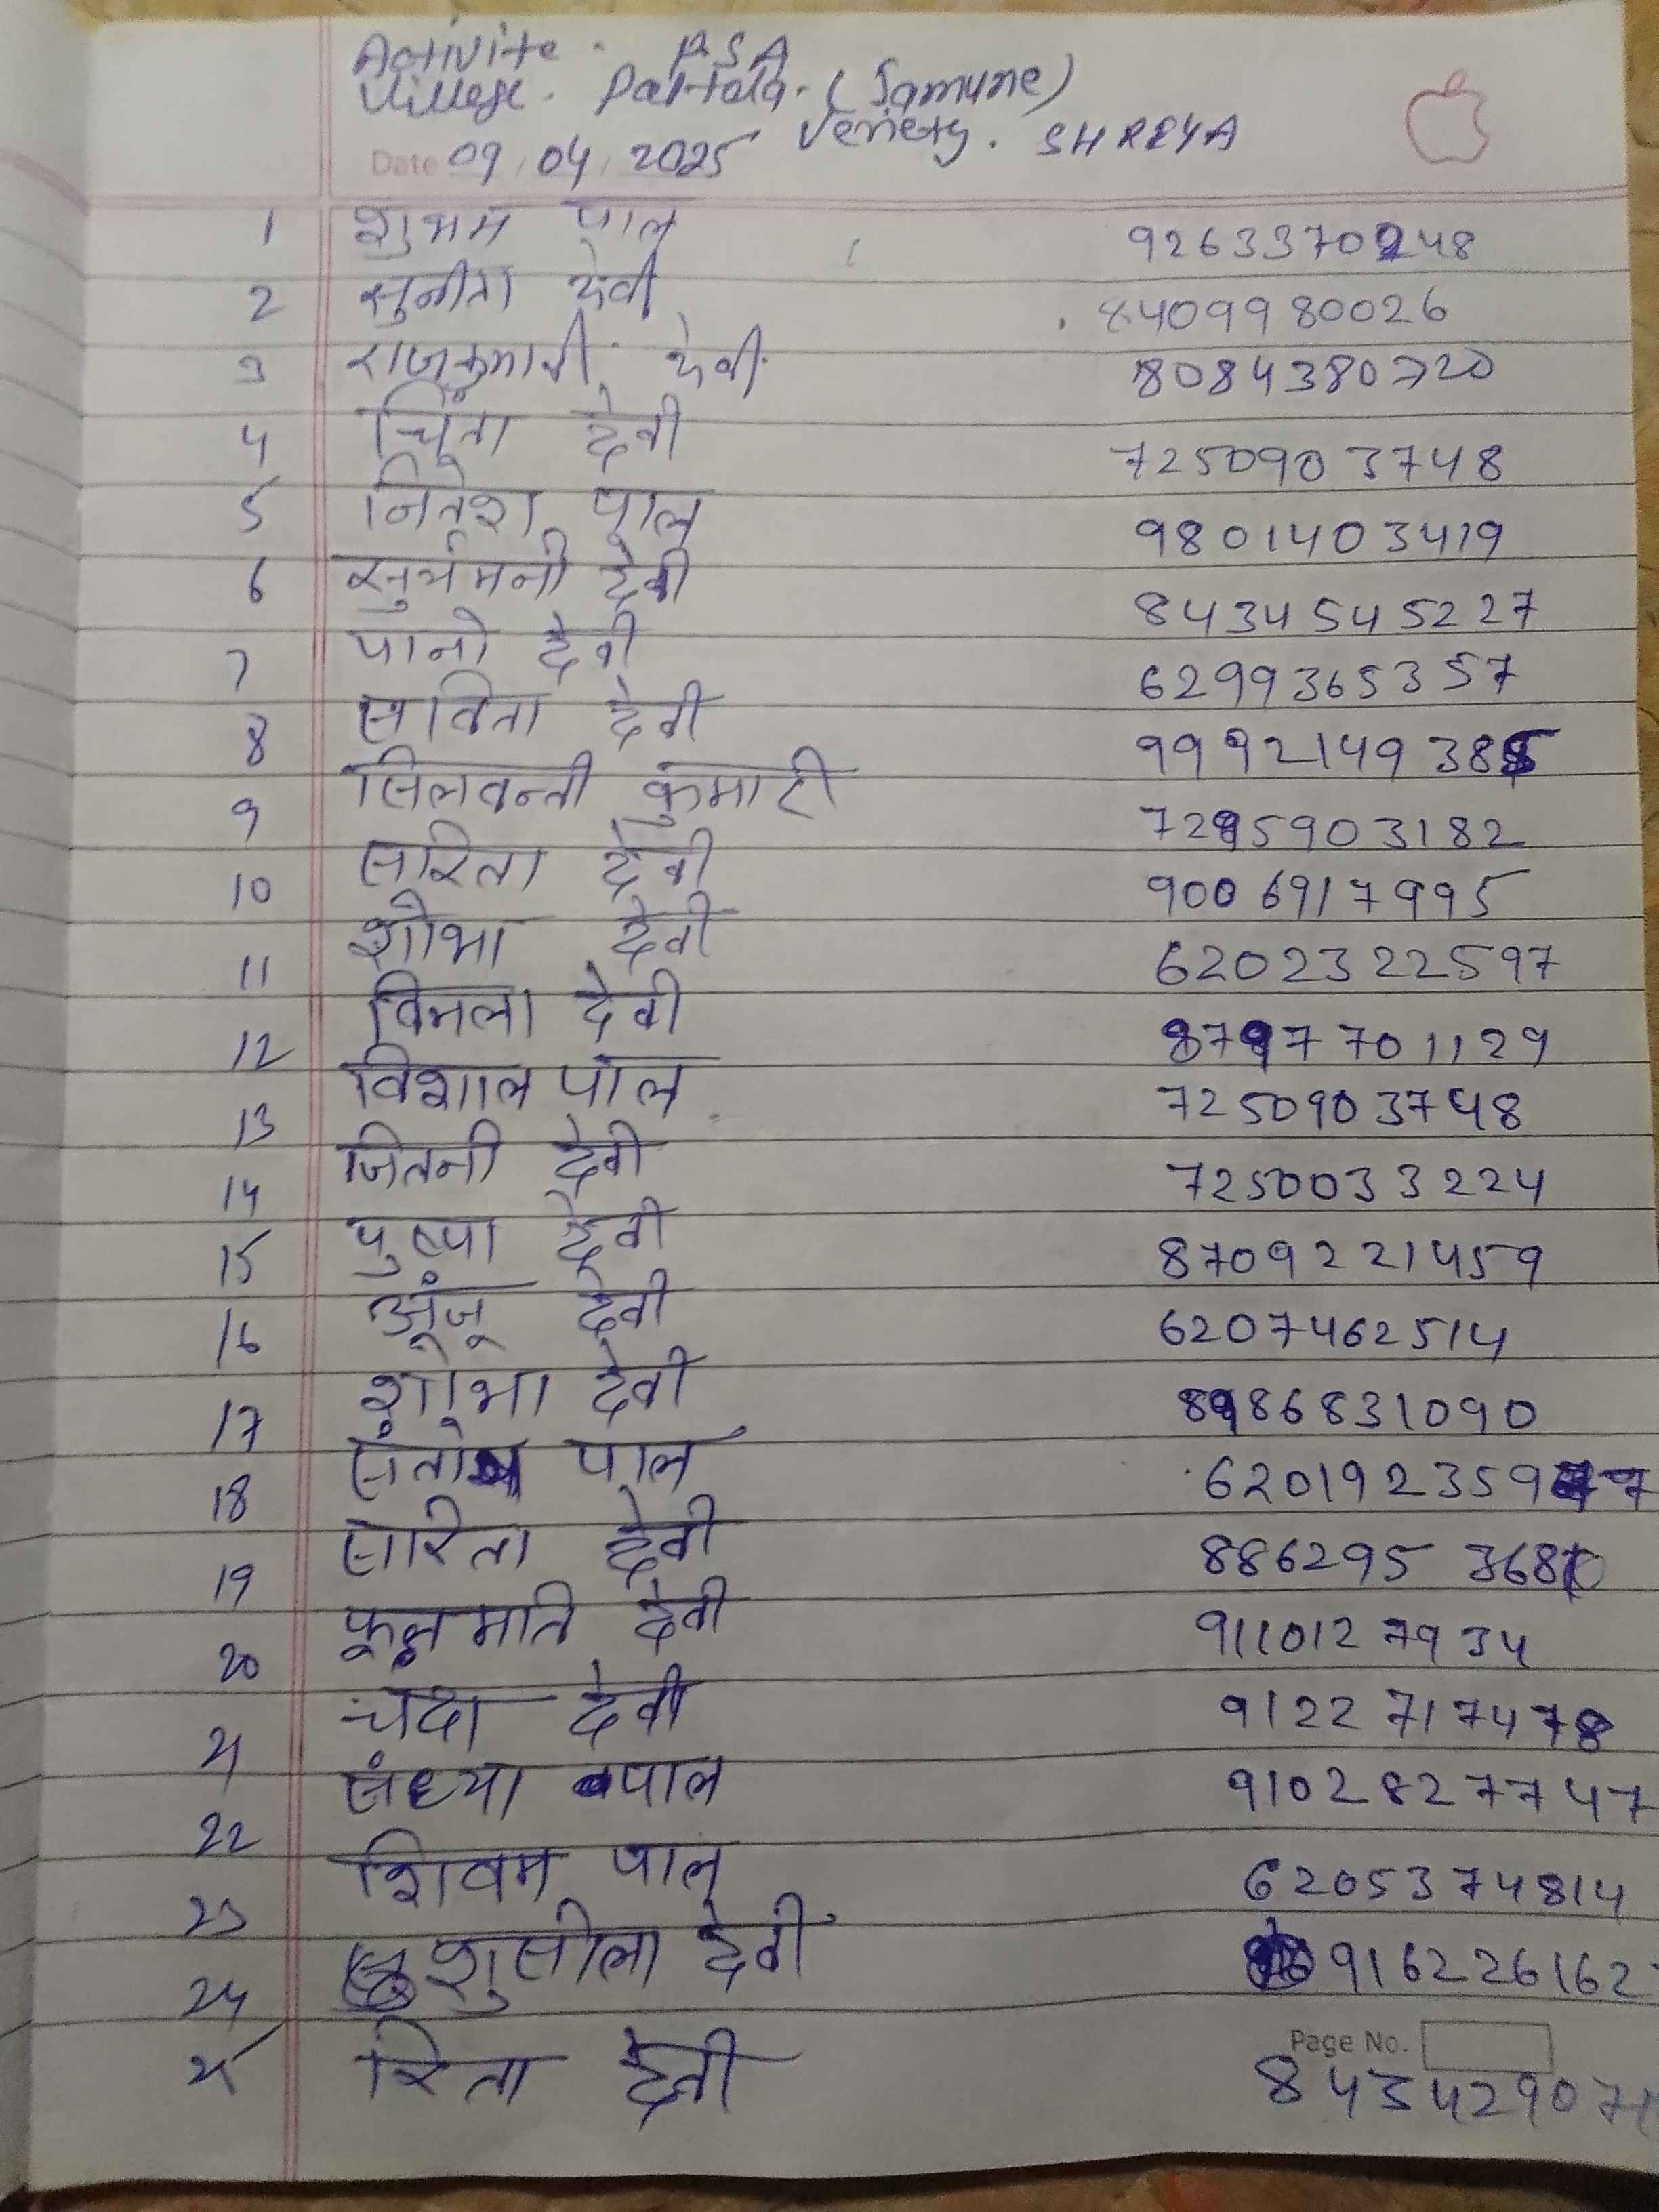 Activite . PSA
Village. Partola. (Jamune)
Veriety. SHREYA
Date 09/04/2025
1 शुभम पाल 9263370248
2 सुनीता देवी 8409980026
3 राजकुमारी देवी 8084380720
4 चिंता देवी 7250903748
5 नितेश पाल 9801403419
6 सुर्यमनी देवी 8434545227
7 पानो देवी 6299365357
8 सविता देवी 9992149385
9 सिलवन्ती कुमारी 7295903182
10 सरिता देवी 9006917995
11 शोभा देवी 6202322597
12 विमला देवी 8797701129
13 विशाल पाल 7250903748
14 जितनी देवी 7250033224
15 पुष्पा देवी 8709221459
16 अंजू देवी 6207462514
17 शोभा देवी 8986831090
18 संतोष पाल 6201923597
19 सरिता देवी 886295368
20 फूलमति देवी 9110127934
21 चंदा देवी 9122717478
22 संध्या पाल 9102827747
23 शिवम पाल 6205374814
24 शुसीला देवी 9162261627
Page No.
25 रिता देवी 84342907